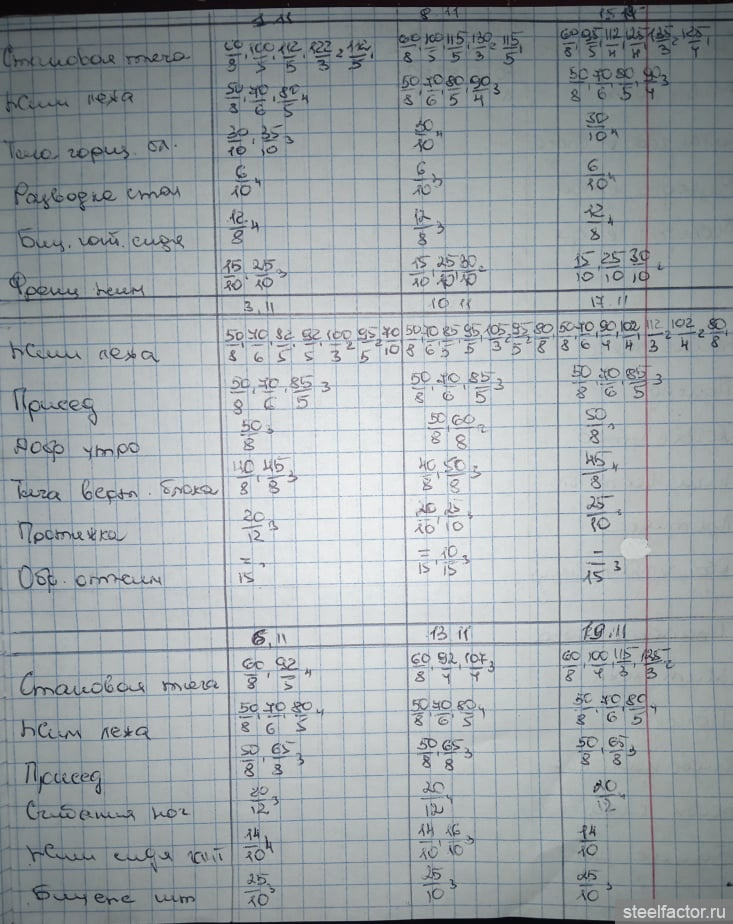 1.11 8.11 15.11
Становая тяга 60/8, 100/5, 112/5, 122/3 2, 112/5, 60/8, 100/5, 115/5, 130/3 2, 115/5, 60/8, 95/5, 112/4, 125/4, 135/3 2, 125/4,
Жим лежа 50/8, 70/6, 80/5 4 50/8, 70/6, 80/5, 90/4 3 50/8, 70/6, 80/5, 90/4 3
Тяга гориз. бл. 30/10, 35/10 3 30/10 4 30/10 4
Разводка стоя 6/10 4 6/10 3 6/10 4
Биц. гант. сидя 12/8 4 12/8 3 12/8 4
Франц жим 15/10, 25/10 3 15/10, 25/10, 30/10 2 15/10, 25/10, 30/10 2
3.11 10.11 17.11
Жим лежа 50/8, 70/6, 82/5, 92/5, 100/3 2, 95/5 2, 70/10 50/8, 70/6, 85/5, 95/5, 105/3 2, 95/5 2, 80/8 50/8, 70/6, 90/4, 102/4, 112/3 2, 102/4 2, 80/8,
Присед 50/8, 70/6, 85/5 3 50/8, 70/6, 85/5 3 50/8, 70/6, 85/5 3
Добр утро 50/8 3 50/8, 60/8 2 50/8 3
Тяга верт. блока 40/8, 45/8 3 40/8, 50/8 3 45/8 4
Протяжка 20/12 3 20/10, 25/10 3 25/10 3
Обр. отжим –/15 3 –/15, 10/15 3 –/15 3
6.11 13.11 19.11
Становая тяга 60/8, 92/5 4 60/8, 92/4, 107/4 3 60/8, 100/4, 115/3, 125/3 2
Жим лежа 50/8, 70/6, 80/5 4 50/8, 70/6, 80/5 4 50/8, 70/6, 80/5 4
Присед 50/8, 65/8 3 50/8, 65/8 3 50/8, 65/8 3
Сгибания ног 20/12 3 20/12 4 20/12 4
Жим сидя гант 14/10 4 14/10, 16/10 3 14/10
Бицепс шт 25/10 3 25/10 3 25/10 3
steelfactor.ru